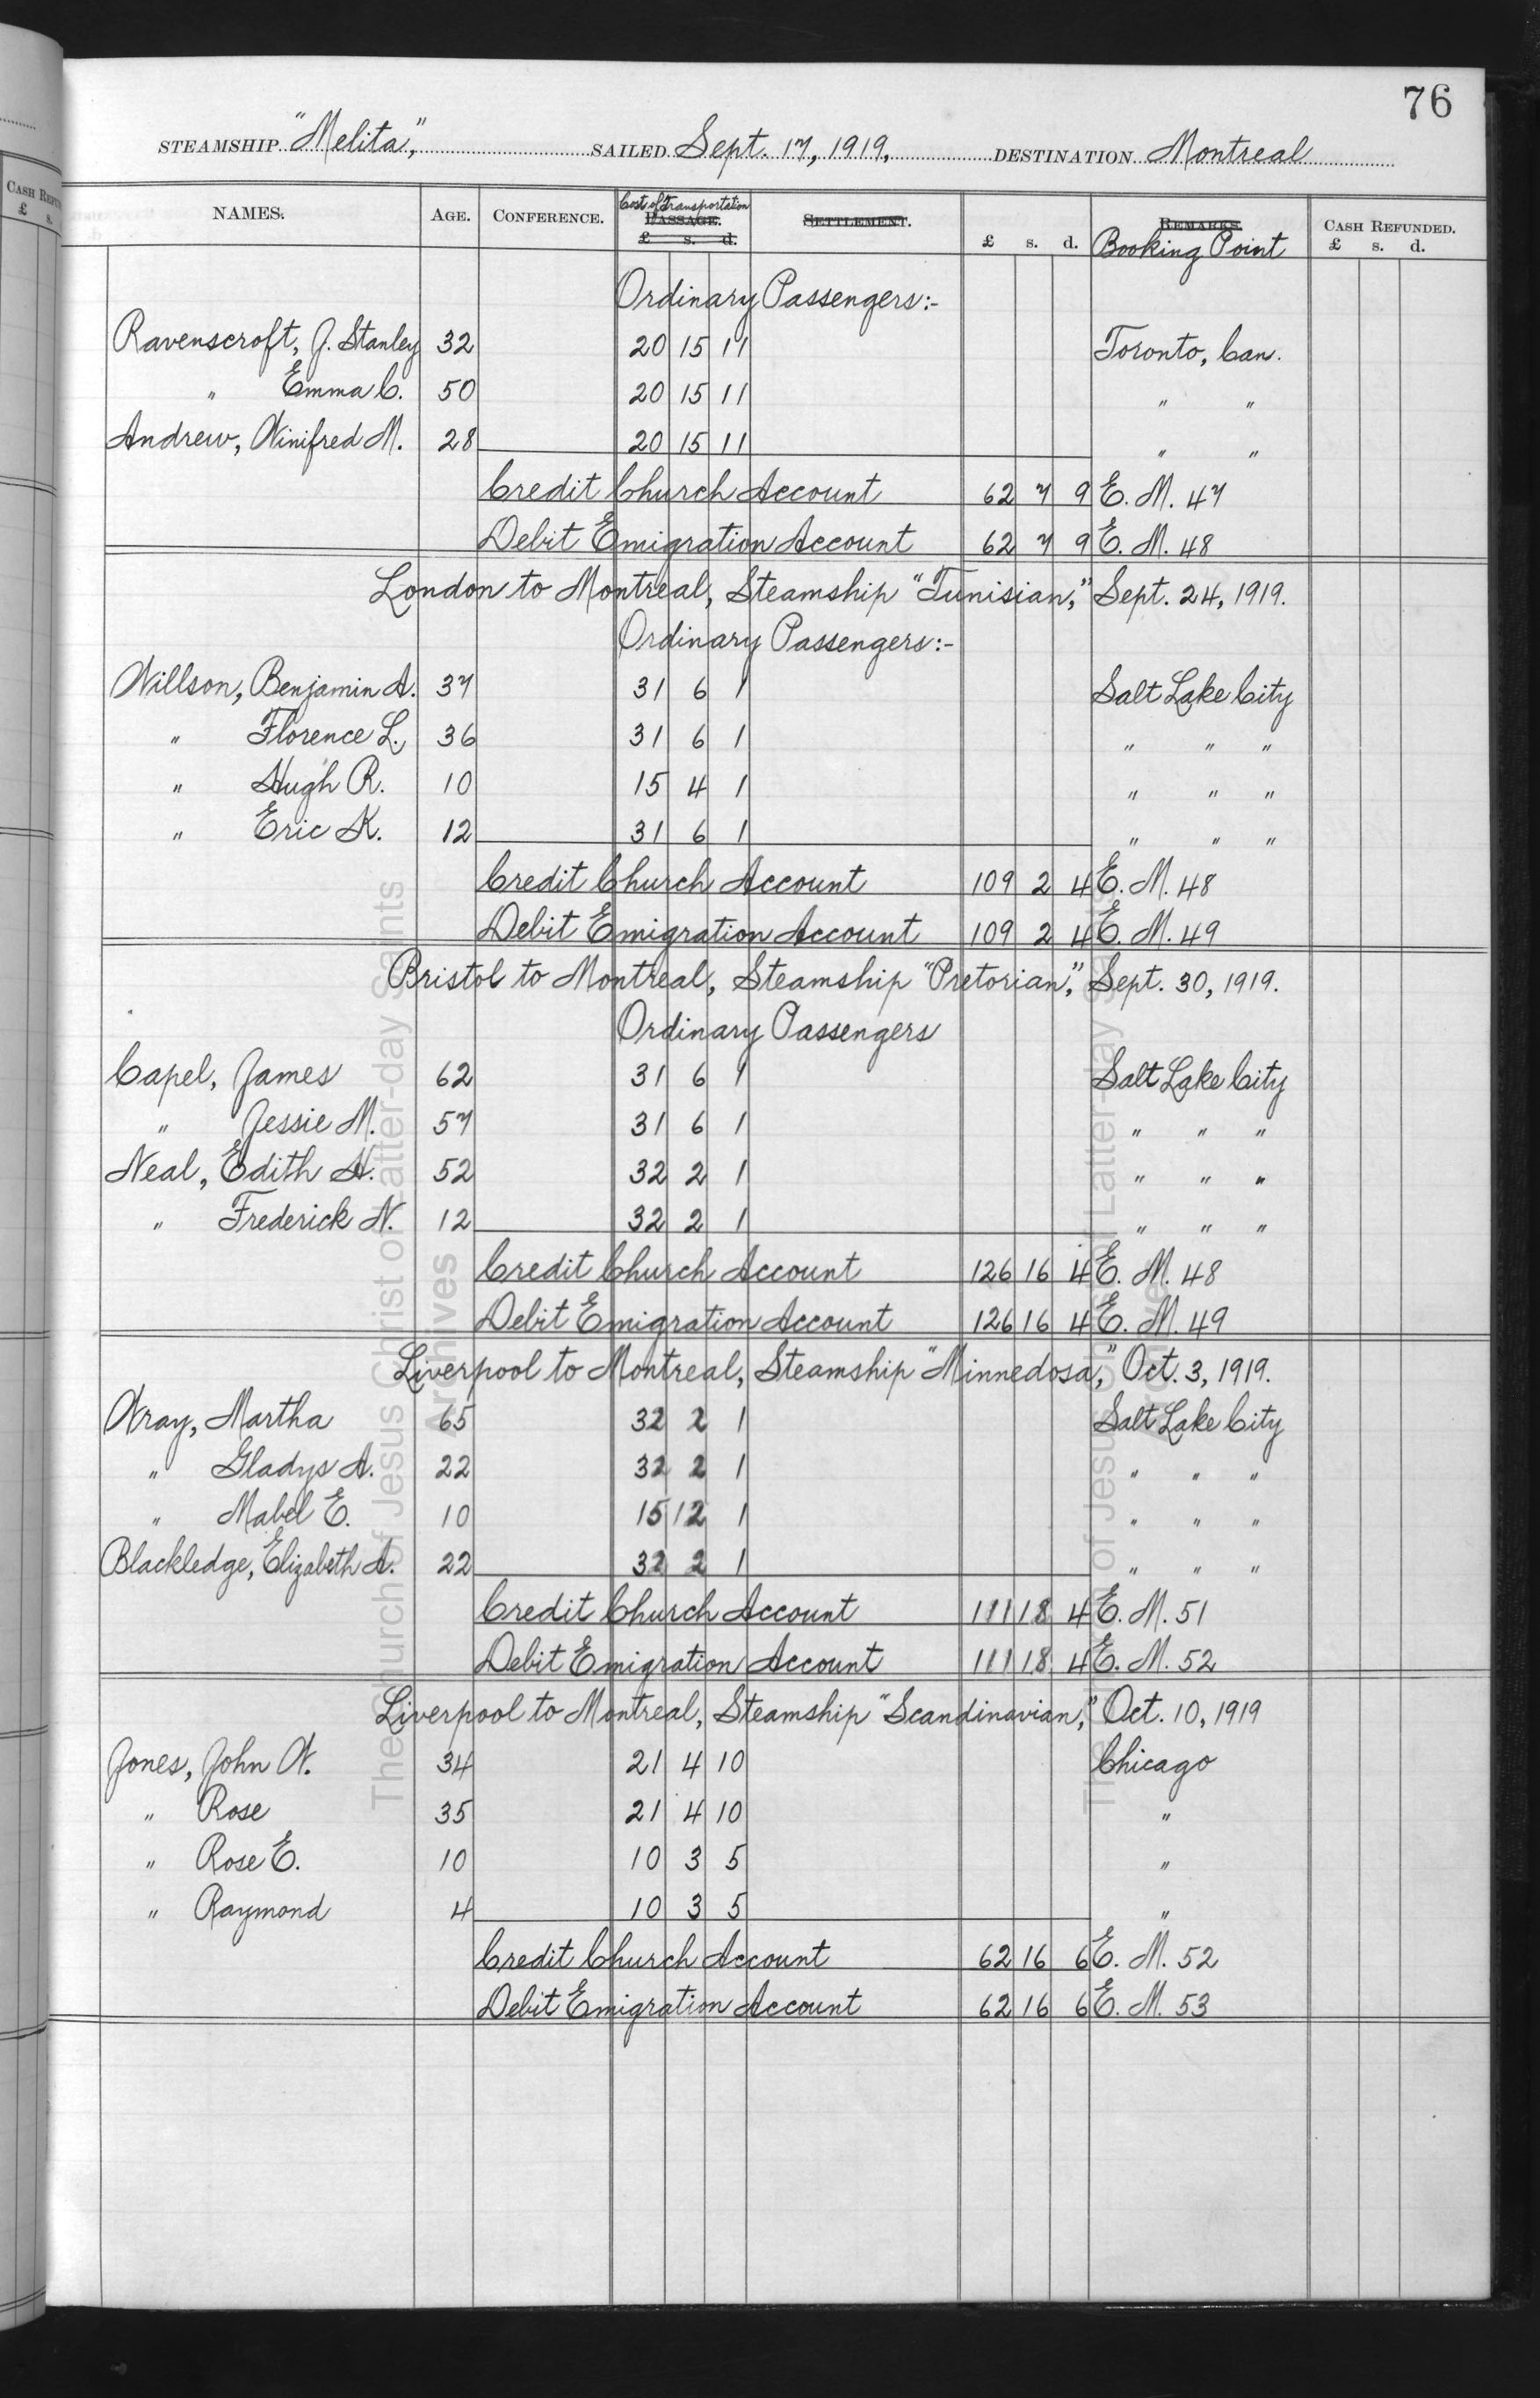 76
STEAMSHIP "Melita," SAILED Sept. 17, 1919, DESTINATION Montreal
NAMES. AGE. CONFERENCE. Cost of Transportation PASSAGE. £ s. d. SETTLEMENT. £ s. d. REMARKS. Booking Point CASH REFUNDED. £ s. d.
Ordinary Passengers:-
Ravenscroft, J. Stanley 32 20 15 11 Toronto, Can.
" Emma C. 50 20 15 11 " "
Andrew, Winifred M. 28 20 15 11 " "
Credit Church Account 62 7 9 E. M. 47
Debit Emigration Account 62 7 9 E. M. 48
London to Montreal, Steamship "Tunisian," Sept. 24, 1919.
Ordinary Passengers:-
Willson, Benjamin A. 37 31 6 1 Salt Lake City
" Florence L. 36 31 6 1 " " "
" Hugh R. 10 15 4 1 " " "
" Eric K. 12 31 6 1 " " "
Credit Church Account 109 2 4 E. M. 48
Debit Emigration Account 109 2 4 E. M. 49
Bristol to Montreal, Steamship "Pretorian," Sept. 30, 1919.
Ordinary Passengers
Capel, James 62 31 6 1 Salt Lake City
" Jessie M. 57 31 6 1 " " "
Neal, Edith H. 52 32 2 1 " " "
" Frederick N. 12 32 2 1 " " "
Credit Church Account 126 16 4 E. M. 48
Debit Emigration Account 126 16 4 E. M. 49
Liverpool to Montreal, Steamship "Minnedosa," Oct. 3, 1919.
Wray, Martha 65 32 2 1 Salt Lake City
" Gladys A. 22 32 2 1 " " "
" Mabel E. 10 15 12 1 " " "
Blackledge, Elizabeth A. 22 32 2 1 " " "
Credit Church Account 111 18 4 E. M. 51
Debit Emigration Account 111 18 4 E. M. 52
Liverpool to Montreal, Steamship "Scandinavian," Oct. 10, 1919
Jones, John W. 34 21 4 10 Chicago
" Rose 35 21 4 10 "
" Rose E. 10 10 3 5 "
" Raymond 4 10 3 5 "
Credit Church Account 62 16 6 E. M. 52
Debit Emigration Account 62 16 6 E. M. 53
CASH REFUN
£ s.
The Church of Jesus Christ of Latter-day Saints
Archives